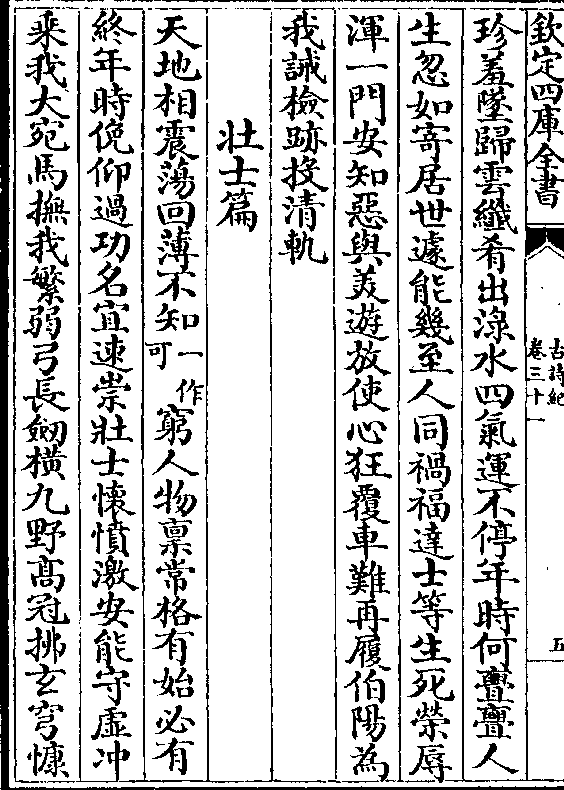 欽定四庫全書
古詩紀
卷三十一
五
珍羞墜歸雲纖肴出淥水四氣運不停年時何亹亹人
生忽如寄居世遽能幾至人同禍福達士等生死榮辱
渾一門安知惡與美遊放使心狂覆車難再履伯陽為
我誡檢跡投清軌
壯士篇
天地相震蕩回薄不知一作可窮人物稟常格有始必有
終年時俛仰過功名宜速崇壯士懷憤激安能守虛沖
乘我大宛馬撫我繁弱弓長劒橫九野髙冠拂玄穹慷